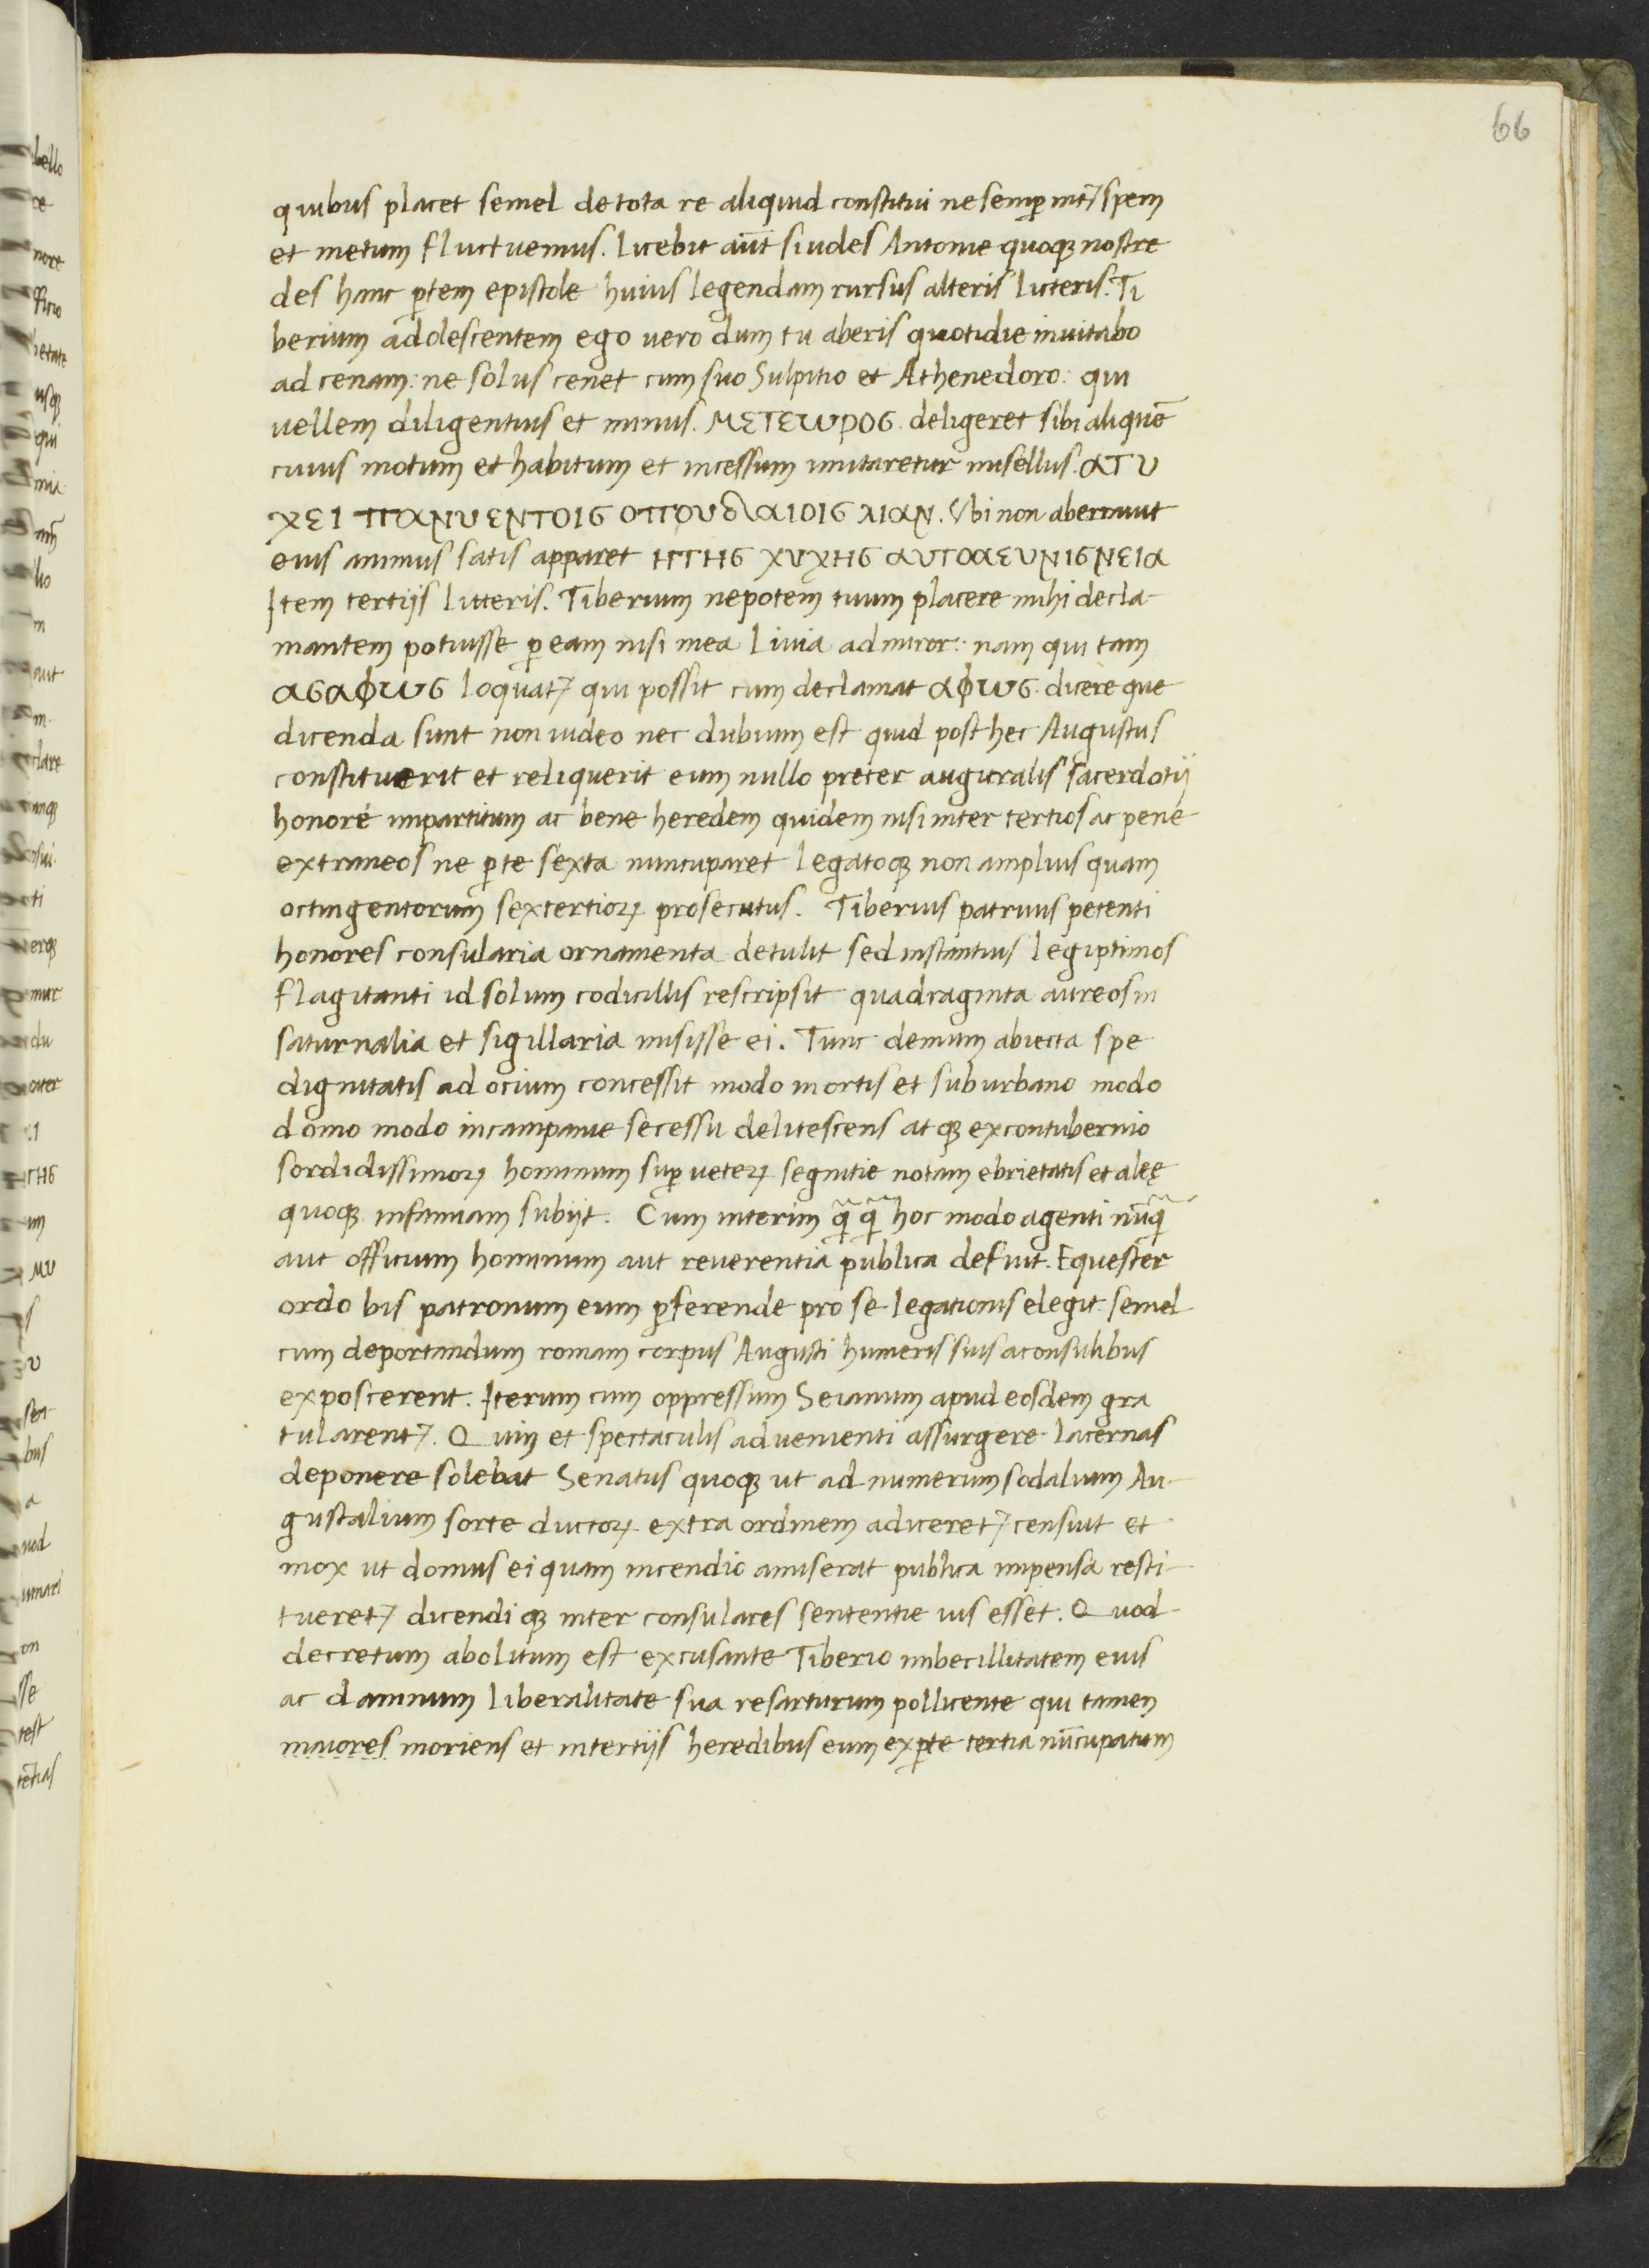 66
quibus placet semel de tota re aliquid constitui ne semꝑ intʼ spem
et metum fluctuemus. licebit aūt si uides Antonie quoqꝫ nostre
des hanc ꝑtem epistole huius legendam rursus alteris litteris. Ti
berium adolescentem ego vero dum tu aberis quotidie inuitabo
ad cenam: ne solus cenet cum suo Sulpitio et Athenedoro: qui
vellem diligentius et minus. ΜΕΤΕωΡΟϹ. deligeret sibi aliquē
cuius motum et habitum et incessum imitaretur misellus. αΤυ
χΕΙ ΠαΝυΕΝΤΟΙϹ ΟΠΟυδλαΙΟΙϹ λΙαΝ. Vbi non aberrauit
eius animus satis apparet ΗΤΗϹ ΧυχΗϹ αυΤΟαΕυΝΙϹΝΕΙα
Item tertijs litteris. Tiberium nepotem tuum placere mihi decla-
mantem potuisse ꝑeam nisi mea Liuia admiror: nam qui tam
αϹαφωϹ loquatʼ qui possit cum declamat αφωϹ. dicere que
dicenda sunt non uideo nec dubium est quid post hec Augustus
constituerit et reliquerit eum nullo preter auguralis sacerdotij
honore impartitum ac bene heredem quidem nisi inter tertios ac pene
extraneos ne ꝑte sexta nuncuparet legatoqꝫ non amplius quam
octingentorum sextertioꝝ prosecutus. Tiberius patruus petenti
honores consularia ornamenta detulit sed instantius legiptimos
flagitanti id solum codicillis rescripsit quadraginta aureos in
saturnalia et sigillaria misisse ei. Tunc demum abiecta spe
dignitatis ad ocium concessit modo in ortis et suburbano modo
domo modo in campanie secessu delitescens atqꝫ ex contubernio
sordidissimoꝝ hominum suꝑ veteꝝ segnitie notam ebrietatis et aleę
quoqꝫ infamiam subijt. Cum interim q̄ꝗ hoc modo agenti nūꝗ
aut officium hominum aut reuerentia publica defuit. Equester
ordo bis patronum eum ꝑferende pro se legationis elegit: semel
cum deportandum romam corpus Augusti humeris suis a consulibus
exposcerent. Iterum cum oppressum Seianum apud eosdem gra
tularentʼ. Quin et spectaculis aduenienti assurgere lacernas
deponere solebat Senatus quoqꝫ ut ad numerum sodalium Au-
gustalium sorte ductoꝝ extra ordinem adiceretʼ censuit et
mox ut domus ei quam incendio amiserat publica impensa resti-
tueretʼ dicendiqꝫ inter consulares sententie ius esset. Quod
decretum abolitum est excusante Tiberio imbecillitatem eius
ac damnum liberalitate sua resarturum pollicente qui tamen
maiores moriens et in tertijs heredibus eum ex ꝑte tertia nūcupatum